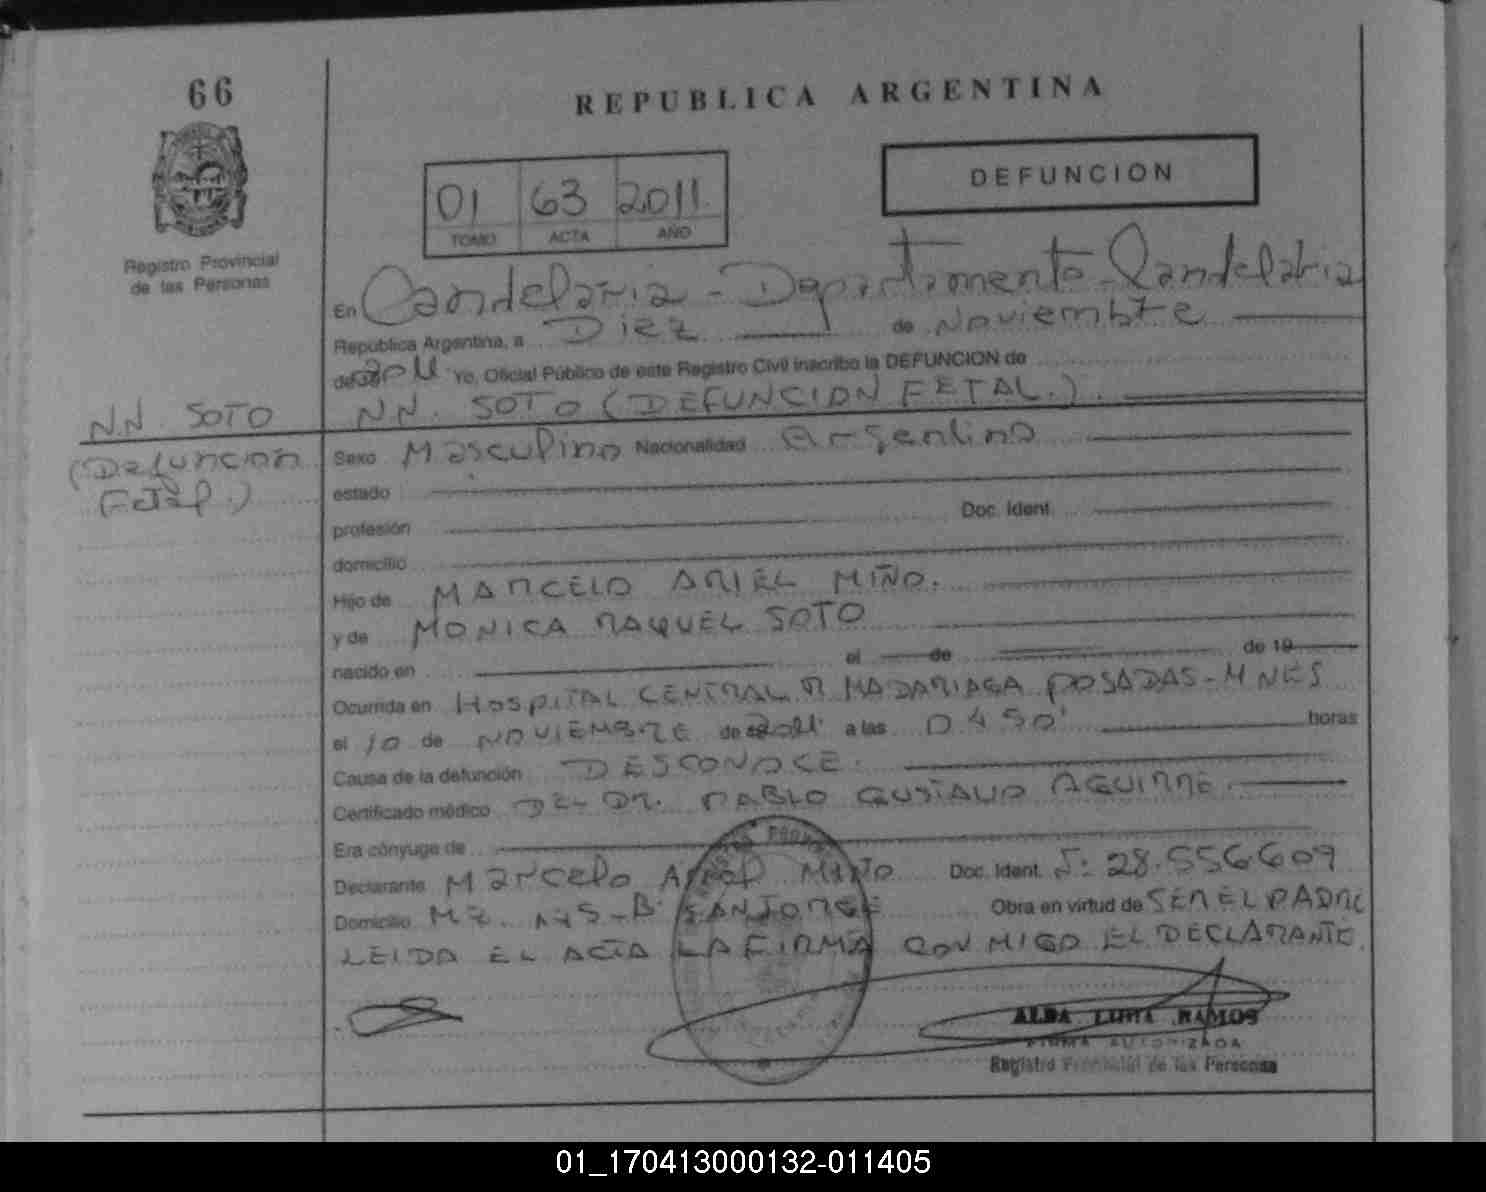 66
REPUBLICA ARGENTINA
DEFUNCION
01 63 2011
TOMO ACTA AÑO
Registro Provincial
de las Personas
En Candelaria - Departamento Candelaria
República Argentina, a Diez de Noviembre
de 2011 Yo, Oficial Público de este Registro Civil inscribo la DEFUNCION de
N.N. SOTO
NN. SOTO (DEFUNCION FETAL.).
(Defuncion
Fetal.)
Sexo Masculino Nacionalidad Argentino
estado
profesión Doc. Ident.
domicilio
Hijo de MARCELO ARIEL MIÑO.
y de MONICA RAQUEL SOTO
nacido en el de de 19
Ocurrida en HOSPITAL CENTRAL R MADARIAGA POSADAS-MNES
el 10 de NOVIEMBRE de 2011 a las 0450' horas
Causa de la defunción DESCONOCE.
Certificado médico DEL DR. PABLO GUSTAVO AGUIRRE.
Era cónyuge de
Declarante Marcelo Ariel MIÑO Doc. Ident. 28.556609
Domicilio MZ. B: SAN JORGE Obra en virtud de SER EL PADRE
LEIDA EL ACTA LA FIRMA CONMIGO EL DECLARANTE.
ALBA LIDIA RAMOS
FIRMA AUTORIZADA
Registro Provincial de las Personas
01_170413000132-011405